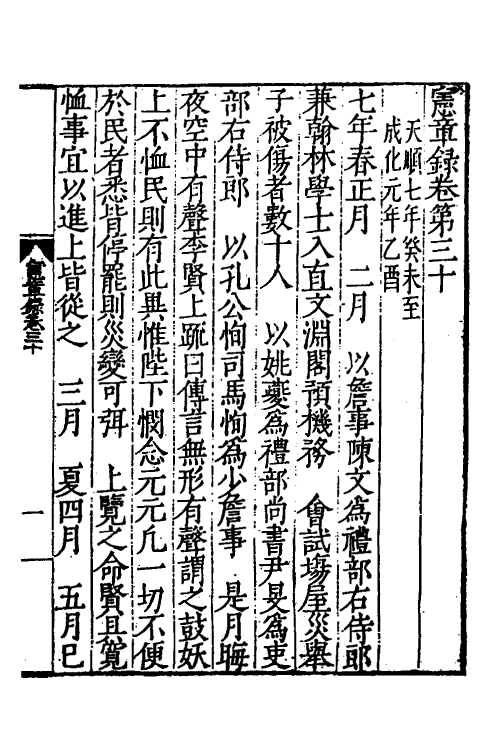 憲章録卷第三十
天順七年癸未至
成化元年乙酉
七年春正月　二月　以詹事陳文為禮部右侍郎
兼翰林學士入直文淵閣預機務　會試場屋災舉
子被傷者數十人　以姚夔為禮部尚書尹旻為吏
部右侍郎　以孔公恂司馬恂為少詹事　是月晦
夜空中有聲李賢上疏曰傳言無形有聲謂之鼓妖
上不恤民則有此異惟陛下憫念元元凢一切不便
於民者悉皆停罷則災變可弭　上覽之命賢具寬
恤事宜以進上皆從之　三月　夏四月　五月巳
憲章録卷三十
一